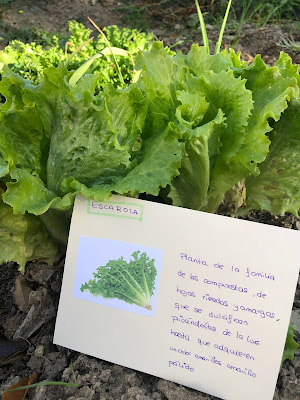 ESCAROLA
Planta de la familia
de las compuestas, de
hojas rizadas y amargas,
que se dulcifican
privándolas de la luz
hasta que adquieren
un color amarillo amarillo
pálido